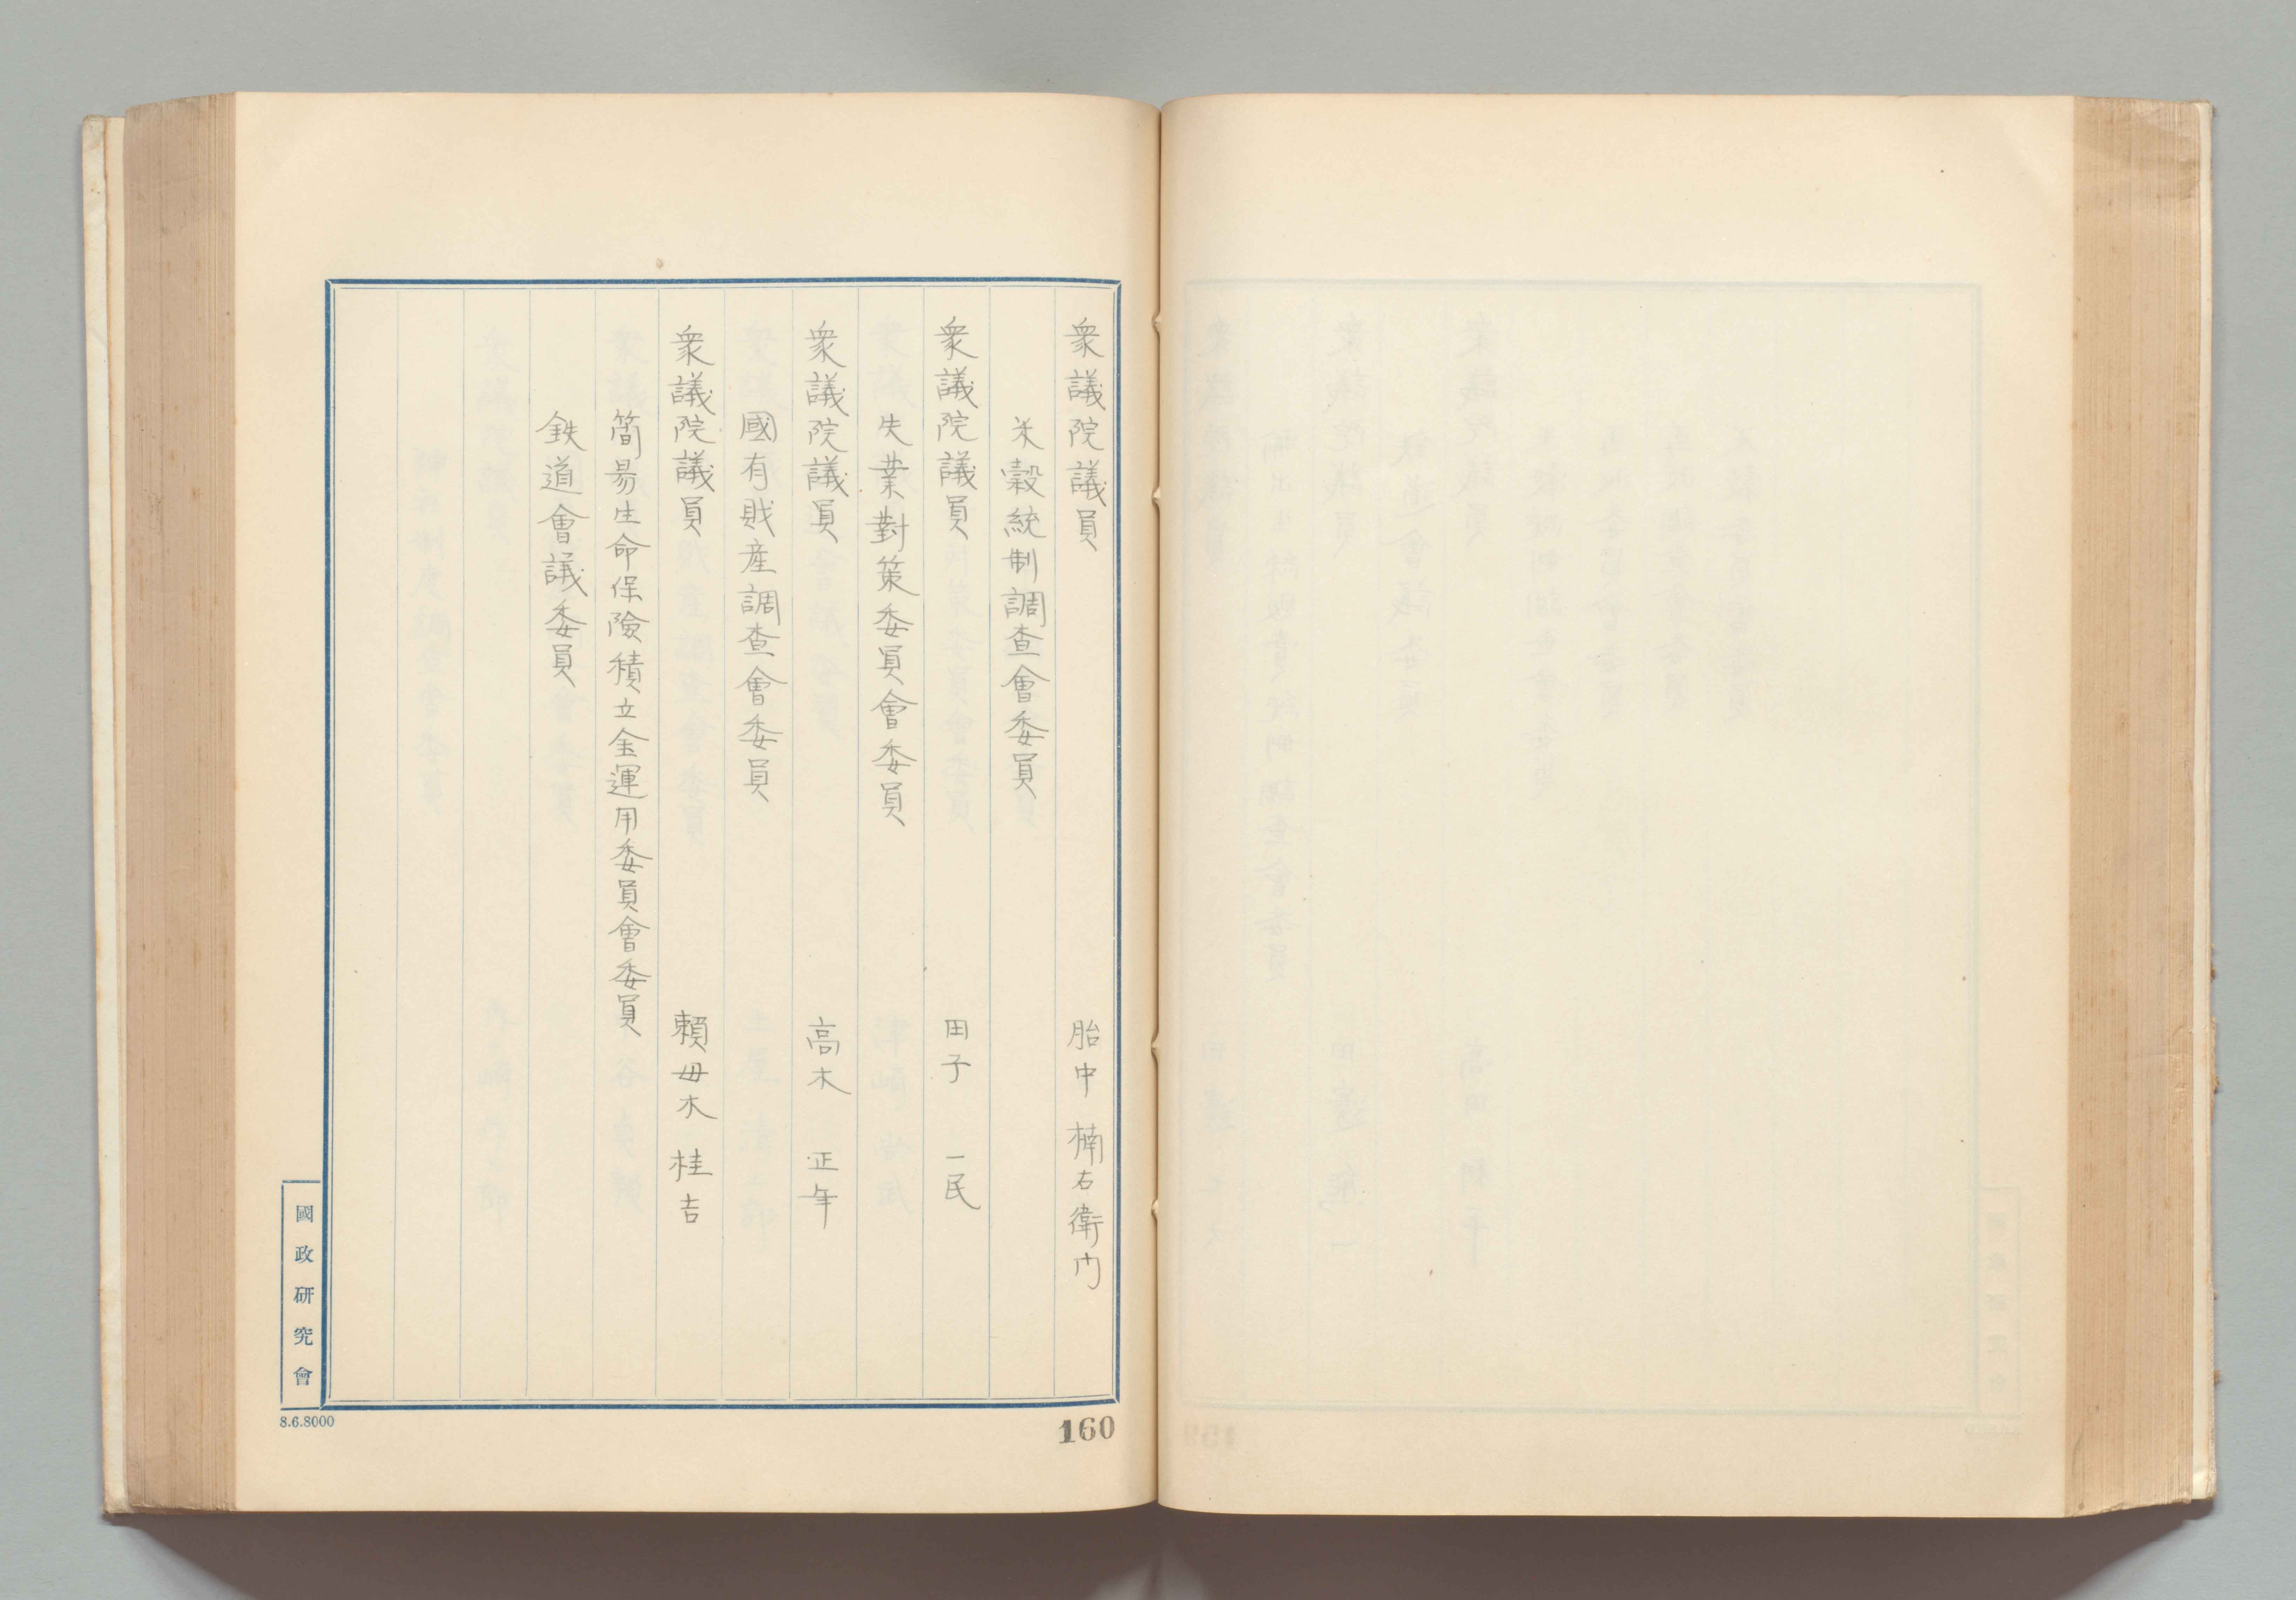 衆議院議員 胎中 楠右衛門
米穀統制調査會委員
衆議院議員 田子 一民
失業對策委員會委員
衆議院議員 高木 正年
國有財産調査會委員
衆議院議員 頼母木 桂吉
簡易生命保險積立金運用委員會委員
鉄道會議委員
國政研究會
8.6.8000
160